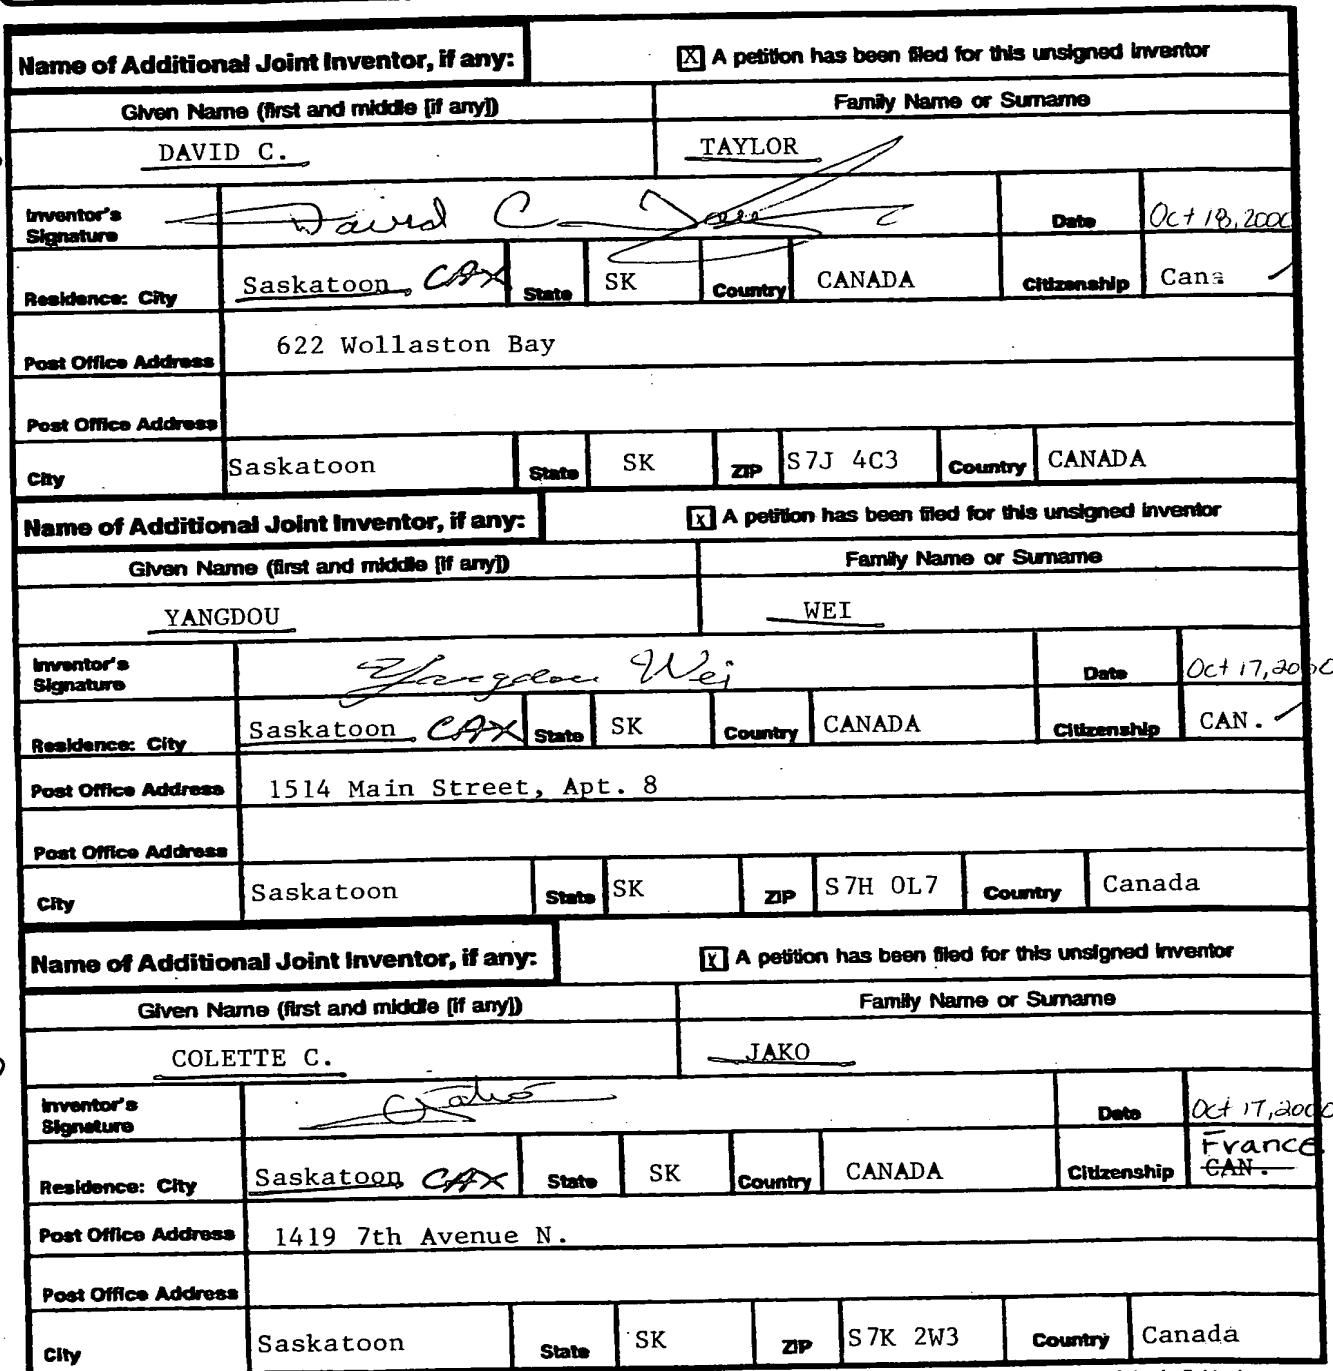 Name of Additional Joint Inventor, if any: [X] A petition has been filed for this unsigned inventor
Given Name (first and middle [if any]) Family Name or Surname
DAVID C. TAYLOR
Inventor's Signature David C. Taylor Date Oct 18, 2000
Residence: City Saskatoon CAX State SK Country CANADA Citizenship Cana
Post Office Address 622 Wollaston Bay
Post Office Address
City Saskatoon State SK ZIP S7J 4C3 Country CANADA
Name of Additional Joint Inventor, if any: [X] A petition has been filed for this unsigned inventor
Given Name (first and middle [if any]) Family Name or Surname
YANGDOU WEI
Inventor's Signature Yangdou Wei Date Oct 17, 2000
Residence: City Saskatoon CAX State SK Country CANADA Citizenship CAN.
Post Office Address 1514 Main Street, Apt. 8
Post Office Address
City Saskatoon State SK ZIP S7H 0L7 Country Canada
Name of Additional Joint Inventor, if any: [X] A petition has been filed for this unsigned inventor
Given Name (first and middle [if any]) Family Name or Surname
COLETTE C. JAKO
Inventor's Signature CJako Date Oct 17, 2000
France
Residence: City Saskatoon CAX State SK Country CANADA Citizenship CAN.
Post Office Address 1419 7th Avenue N.
Post Office Address
City Saskatoon State SK ZIP S7K 2W3 Country Canada